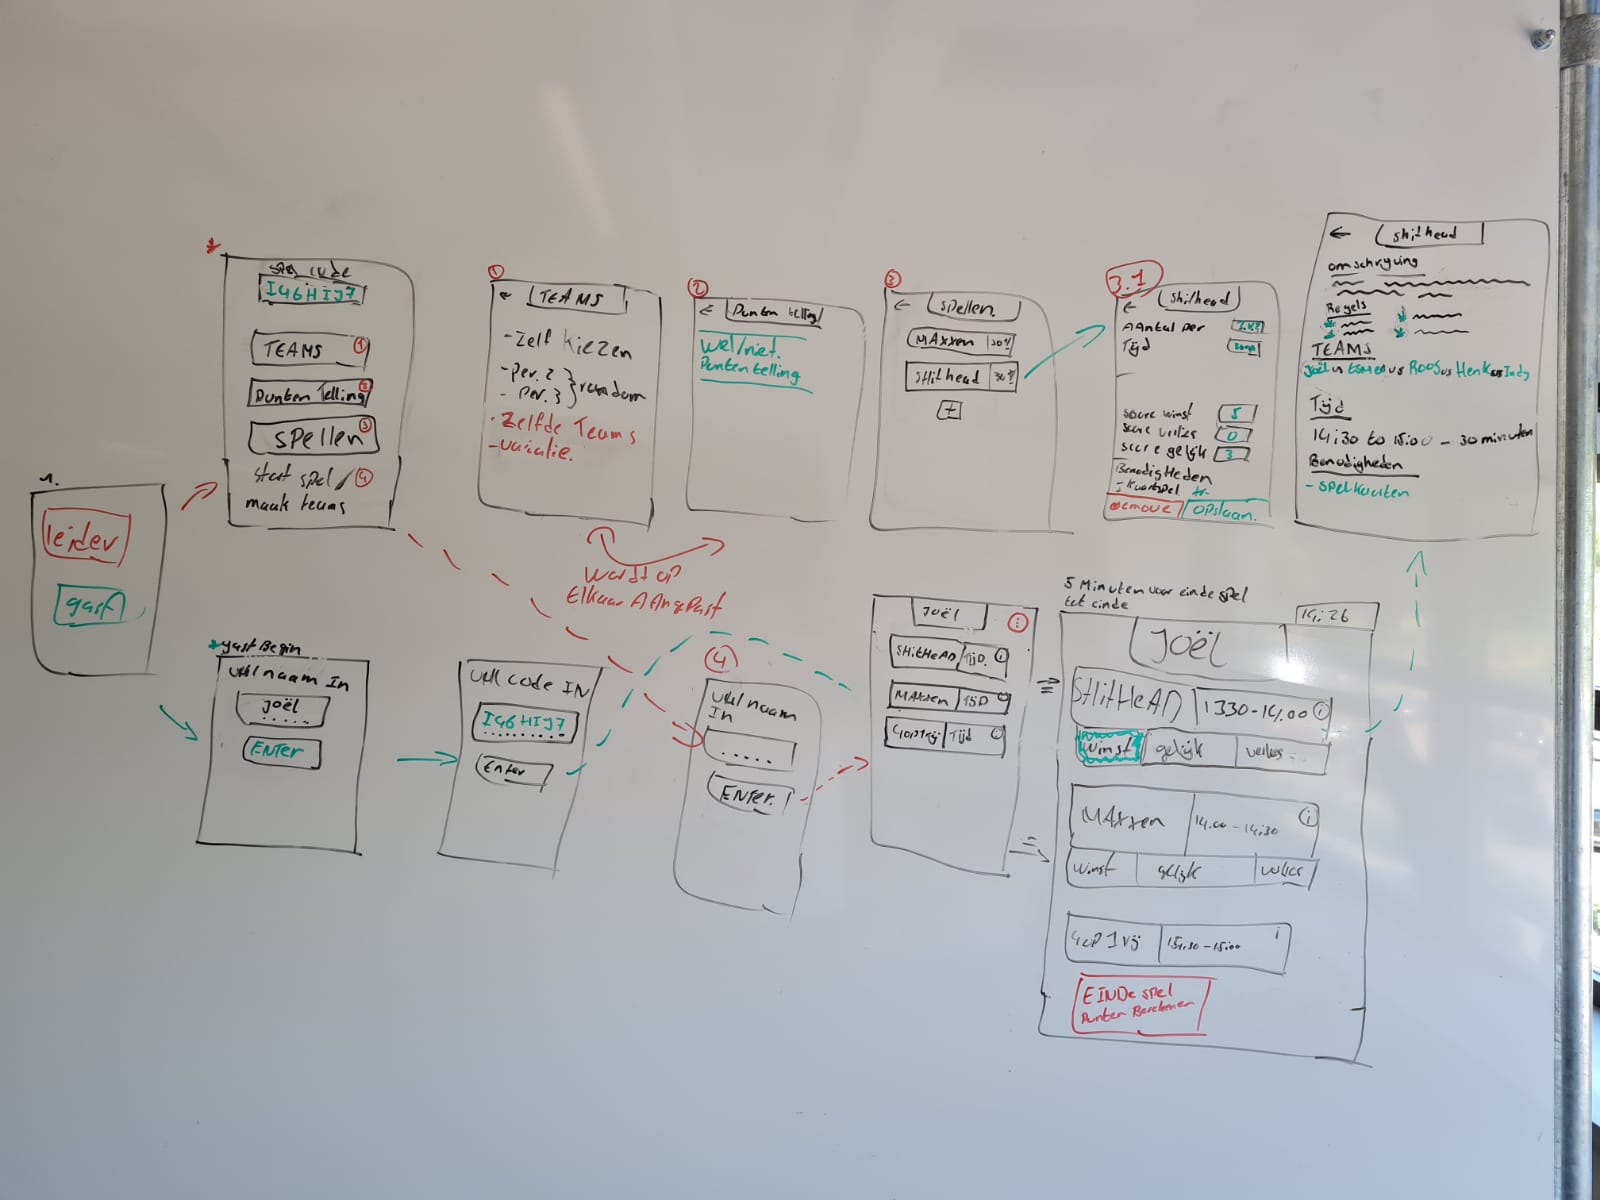 1.
leider
gast
*
spel code
I46HIJ7
TEAMS 1
Punten Telling 2
SPELLEN 3
Start spel / 4
maak teams
1
← TEAMS
- Zelf kiezen
- per. 2
- per. 3 } random
- Zelfde Teams
- variatie.
2
← Punten telling
Wel/niet.
Punten telling
3
← Spellen.
MAxxen
Shithead
+
Wordt op
Elkaar AAngepast
3.1
← Shithead
AAntal per
Tijd
score winst 5
score verlies 0
score gelijk 3
Benodigheden
1 kaartspel
Remove
opslaan.
← shithead
omschrijving
Regels
TEAMS
Joël vs Esmea vs Roos vs Henk vs Indy
Tijd
14:30 to 15:00 - 30 minuten
Benodigheden
- spelkaarten
*gast Begin
vul naam In
Joël
ENTer
vul code IN
I46HIJ7
Enter
4
vul naam
In
....
ENTer.
Joël
i
SHitHeAD TijD. i
MAxxen TijD
4op1rij Tijd
5 Minuten voor einde spel
tot einde
14:26
Joël
SHitHeAD 1330-14.00 i
winst gelijk verlies
MAxxen 14.00-14:30 i
winst gelijk verlies
4op1rij 14:30-15:00 i
EINDe spel
Punten Berekenen